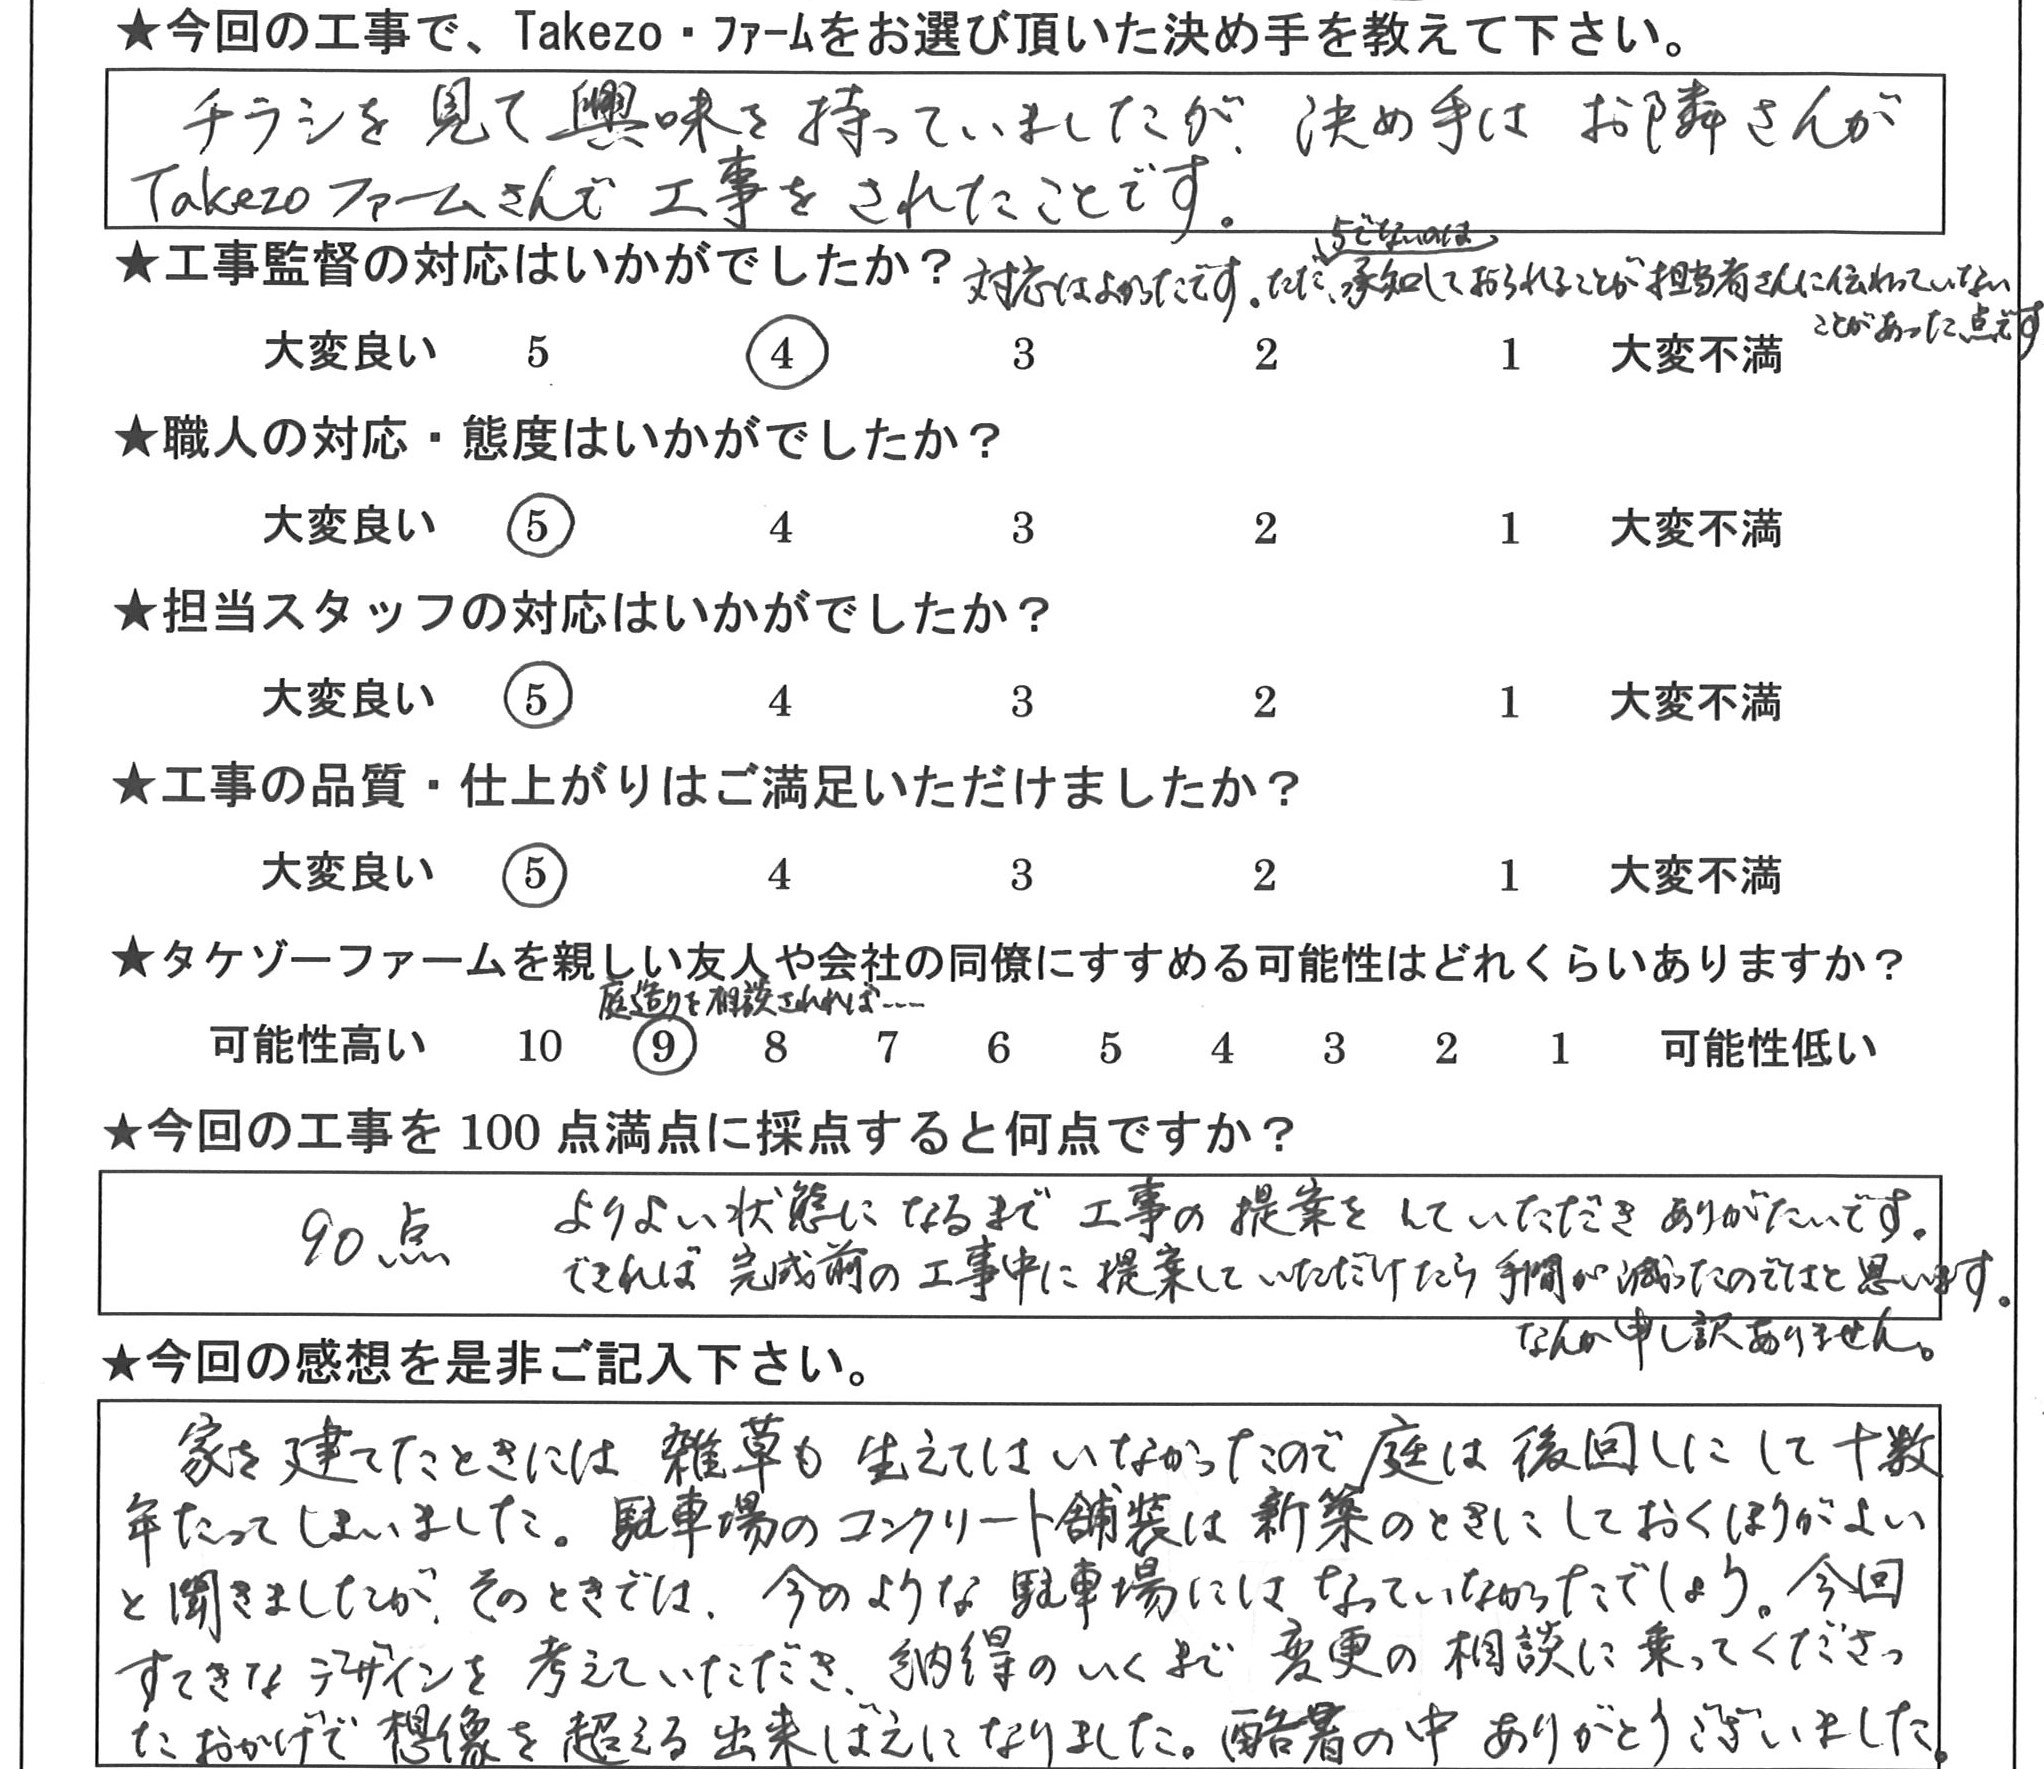 ★今回の工事で、Takezo・ファームをお選び頂いた決め手を教えて下さい。
チラシを見て興味を持っていましたが、決め手はお隣さんが
Takezoファームさんで工事をされたことです。
★工事監督の対応はいかがでしたか？
5でないのは
対応はよかったです。ただ、承知しておられることが担当者さんに伝わっていない
ことがあった点です
大変良い 5 4 3 2 1 大変不満
★職人の対応・態度はいかがでしたか？
大変良い 5 4 3 2 1 大変不満
★担当スタッフの対応はいかがでしたか？
大変良い 5 4 3 2 1 大変不満
★工事の品質・仕上がりはご満足いただけましたか？
大変良い 5 4 3 2 1 大変不満
★タケゾーファームを親しい友人や会社の同僚にすすめる可能性はどれくらいありますか？
庭造りを相談されれば----
可能性高い 10 9 8 7 6 5 4 3 2 1 可能性低い
★今回の工事を 100 点満点に採点すると何点ですか？
90点 よりよい状態になるまで工事の提案をしていただきありがたいです。
できれば完成前の工事中に提案していただけたら手間が減ったのではと思います。
なんか申し訳ありません。
★今回の感想を是非ご記入下さい。
家を建てたときには雑草も生えてはいなかったので庭は後回しにして十数
年たってしまいました。駐車場のコンクリート舗装は新築のときにしておくほうがよい
と聞きましたが、そのときでは、今のような駐車場にはなっていなかったでしょう。今回
すてきなデザインを考えていただき、納得のいくまで変更の相談に乗ってくださっ
たおかげで想像を超える出来ばえになりました。酷暑の中ありがとうございました。